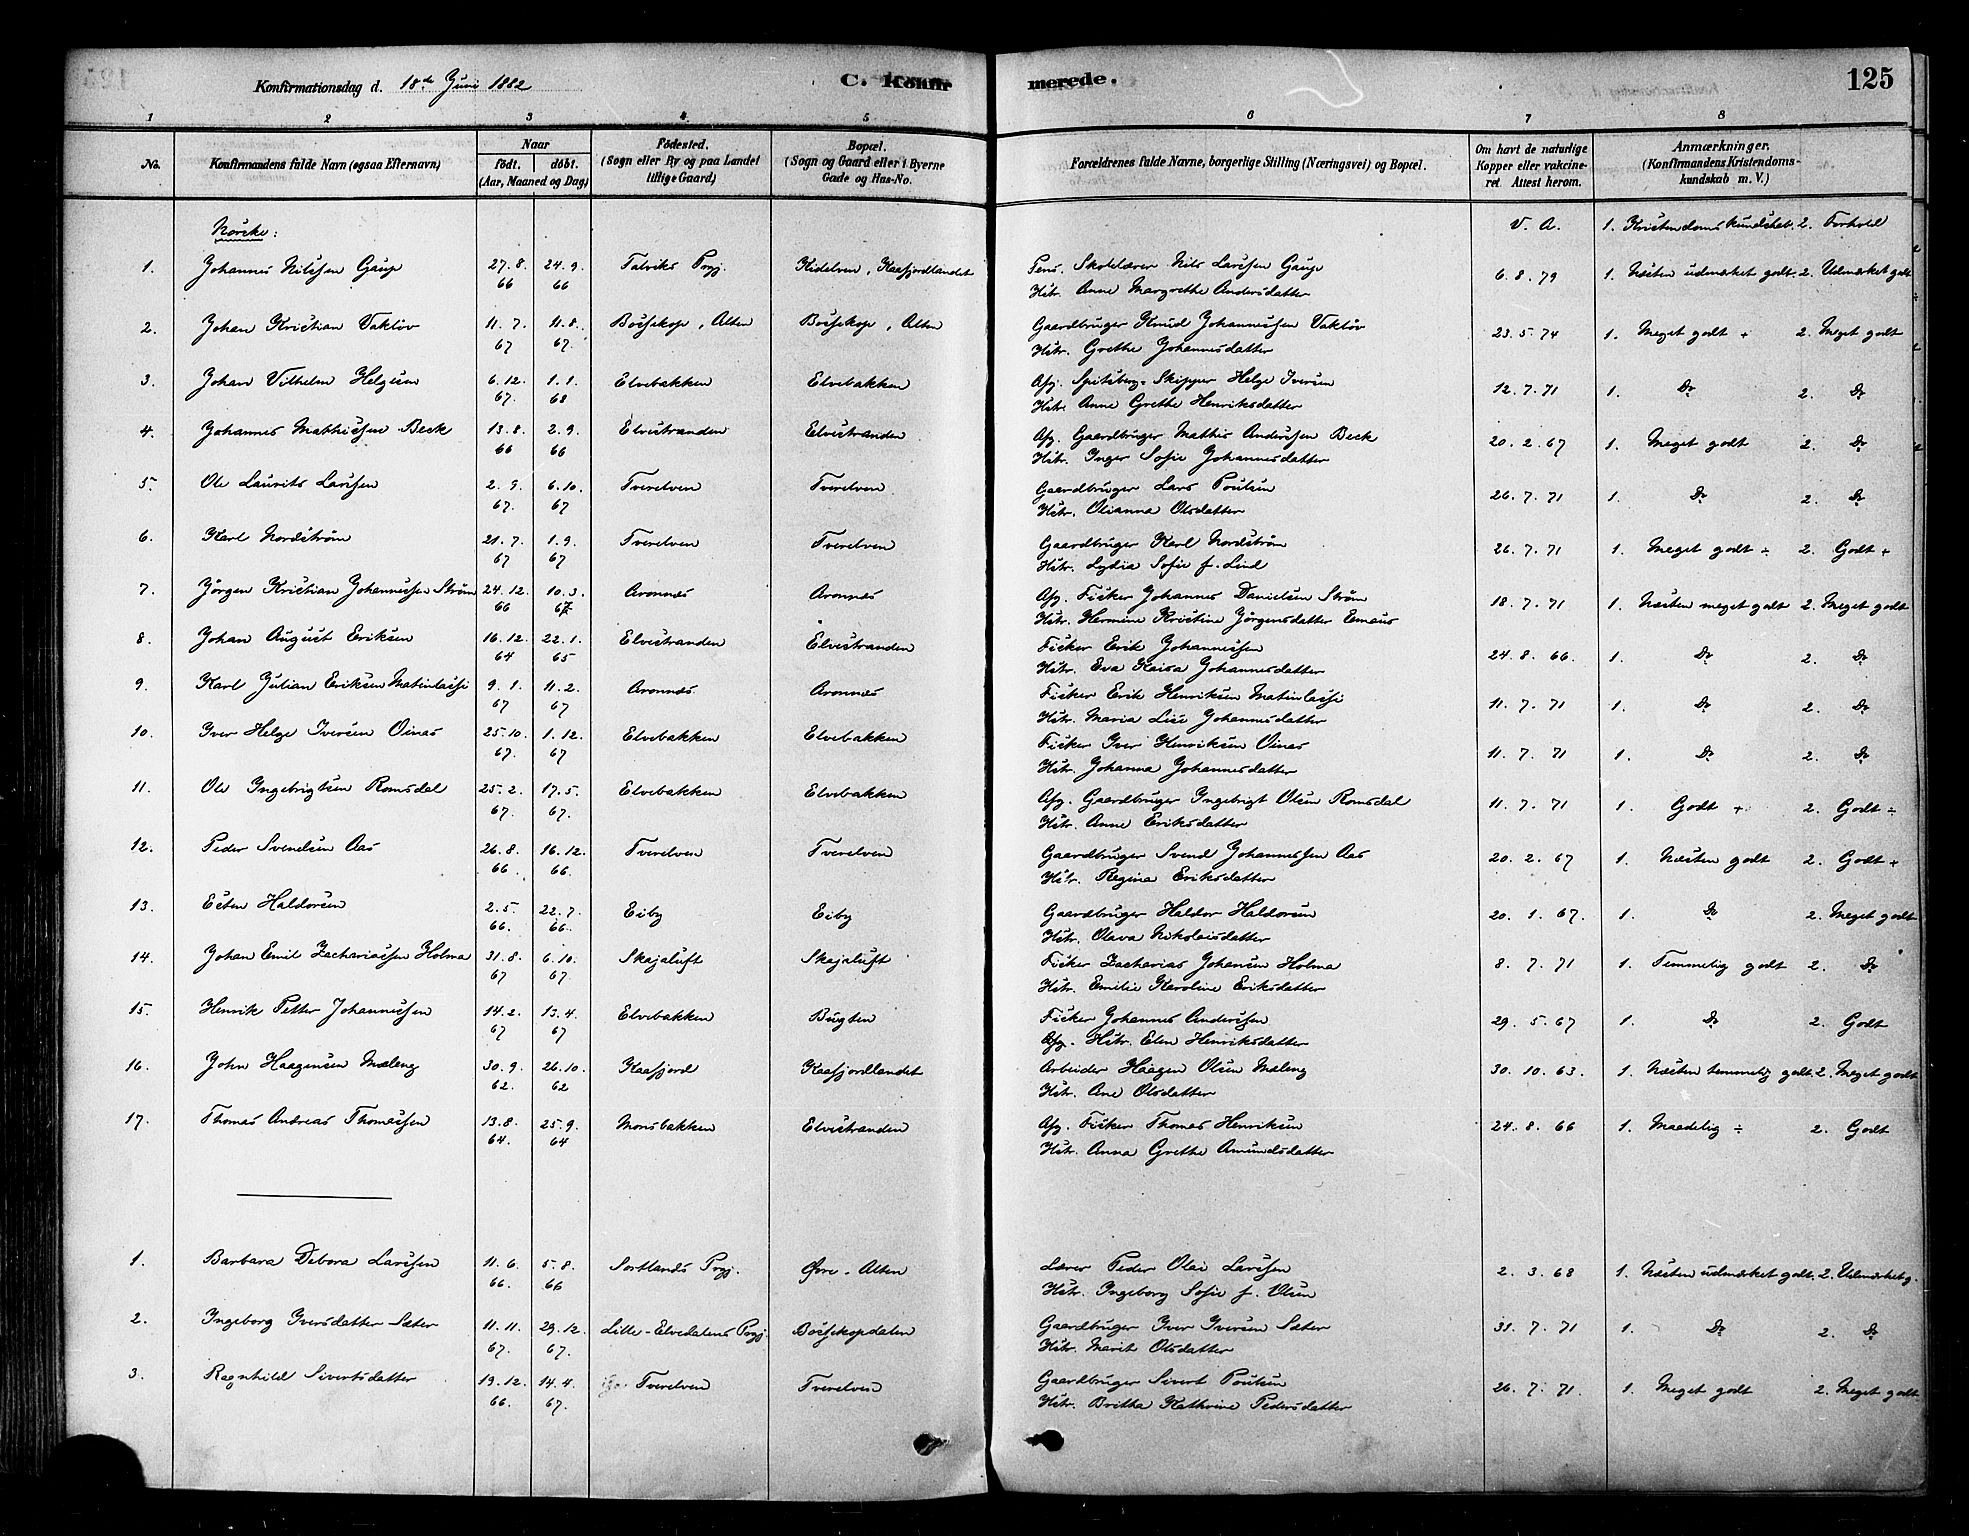 Konfirmationsdag d. 18de Juni 1882 C. Konfir merede. 125
1 2 3 4 5 6 7 8
No. Konfirmandens fulde Navn (ogsaa Efternavn) Naar födt. döbt. (Aar, Maaned og Dag) Födested. (Sogn eller By og paa Landet tillige Gaard) Bopæl. (Sogn og Gaard eller i Byerne Gade og Hus-No. Forældrenes fulde Navne, borgerlige Stilling (Næringsvei) og Bopæl. Om havt de naturlige Kopper eller vakcineret. Attest herom. Anmærkninger. (Konfirmandens Kristendomskundskab m. V.)
Norske: V. A. 1. Kristendomskundskab. 2. Forhold
1. Johannes Nilssen Gaup 27. 8. 66 24. 9. 66 Talviks Prgj. Kidelven, Kaafjordlandet Pens. Skolelærer Nils Larssen Gaup 6. 8. 79 1. Næsten udmærket godt. 2. Udmærket godt
Hstr. Anne Margrethe Andersdatter
2. Johan Kristian Vaktöv 11. 7. 67 11. 8. 67. Bossekop, Alten Bossekop, Alten Gaardbruger Knud Johannessen Vaktöv 23. 5. 74 1. Meget godt + 2. Meget godt
Hstr. Grethe Johannesdatter
3. Johan Vilhelm Helgesen 6. 12. 67. 1. 1. 68 Elvebakken Elvebakken Afg. Spitsberg-Skipper Helge Iversen 12. 7. 71 1. Do 2. Do
Hstr. Anne Grethe Henriksdatter
4. Johannes Mathissen Beck 13. 8. 66 2. 9. 66 Elvestranden Elvestranden Afg. Gaardbruger Mathis Anderssen Beck 20. 2. 67 1. Meget godt 2. Do
Hstr. Inger Sofie Johannesdatter
5. Ole Laurits Larssen 2. 9. 67. 6. 10. 67 Tverelven Tverelven Gaardbruger Lars Poulsen 26. 7. 71 1. Do 2. Do
Hstr. Olianna Olsdatter
6. Karl Nordström 21. 7. 67 1. 9. 67 Tverelven Tverelven Gaardbruger Karl Nordström 26. 7. 71 1. Meget godt ÷ 2. Godt +
Hstr. Lydia Sofie f. Lind
7. Jörgen Kristian Johannessen Ström 24. 12. 66 10. 3. 67 Aronnes Aronnes Afg. Fisker Johannes Danielsen Ström 18. 7. 71 1. Næsten meget godt 2. Meget godt
Hstr. Hermine Kristine Jörgensdatter Emaus
8. Johan August Eriksen 16. 12. 64 22. 1. 65 Elvestranden Elvestranden Fisker Erik Johannessen 24. 8. 66. 1. Do 2. Do
Hstr. Eva Kaisa Johannesdatter
9. Karl Julian Eriksen Matinlassi 9. 1. 67 11. 2. 67 Aronnes Aronnes Fisker Erik Henriksen Matinlassi 11. 7. 71 1. Do 2. Do
Hstr. Maria Lise Johannesdatter
10. Iver Helge Iversen Oinas 25. 10. 67. 1. 12. 67 Elvebakken Elvebakken Fisker Iver Henriksen Oinas 11. 7. 71 1. Do 2. Do
Hstr. Johanna Johannesdatter
11. Ole Ingebrigtsen Romsdal 25. 2. 67. 17. 5. 67. Elvebakken Elvebakken Afg. Gaardbruger Ingebrigt Olsen Romsdal 11. 7. 71 1. Godt + 2. Godt ÷
Hstr. Anne Eriksdatter
12. Peder Svendsen Aas 26. 8. 66 16. 12. 66. Tverelven Tverelven Gaardbruger Svend Johannessen Aas 20. 2. 67 1. Næsten godt 2. Godt +
Hstr. Regina Eriksdatter
13. Esten Haldorsen 2. 5. 66. 22. 7. 66. Eiby Eiby Gaardbruger Haldor Haldorsen 20. 1. 67. 1. Do 2. Meget godt
Hstr. Olava Nikolaisdatter
14. Johan Emil Zachariassen Holma 31. 8. 67 6. 10. 67. Skajaluft Skajaluft Fisker Zacharias Johansen Holma 8. 7. 71 1. Temmelig godt 2. Do
Hstr. Emilie Karoline Eriksdatter
15. Henrik Petter Johannessen 14. 2. 67 13. 4. 67 Elvebakken Bugten Fisker Johannes Anderssen 29. 5. 67 1. Do 2. Godt
Afg. Hstr. Elen Henriksdatter
16. John Haagensen Mæleng 30. 9. 62. 26. 10. 62 Kaafjord Kaafjordlandet Arbeider Haagen Olsen Mæleng 30. 10. 63. 1. Næsten temmelig godt. 2. Meget godt
Hstr. Ane Olsdatter
17. Thomas Andreas Thomassen 13. 8. 64. 25. 9. 64 Monsbakken Elvestranden Afg. Fisker Thomas Henriksen 24. 8. 66 1. Maadelig ÷ 2. Godt
Hstr. Anna Grethe Amundsdatter
1. Barbara Debora Larssen 11. 6. 66. 5. 8. 66 Sortlands Prgj. Övre-Alten Lærer Peder Olai Larssen 2. 3. 68 1. Næsten udmærket godt. 2. Udmærket g.
Hstr. Ingeborg Sofie f. Olsen
2. Ingeborg Iversdatter Sæter 11. 11. 67. 29. 12. 67. Lille-Elvedalens Prgj. Bossekopdalen Gaardbruger Iver Iversen Sæter 31. 7. 71 1. Do 2. Do
Hstr. Marit Olsdatter
3. Ragnhild Sivertsdatter 19. 12. 66. 14. 4. 67. Tverelven Tverelven Gaardbruger Sivert Poulsen 26. 7. 71. 1. Meget godt 2. Meget godt
Hstr. Britha Kathrine Pedersdatter